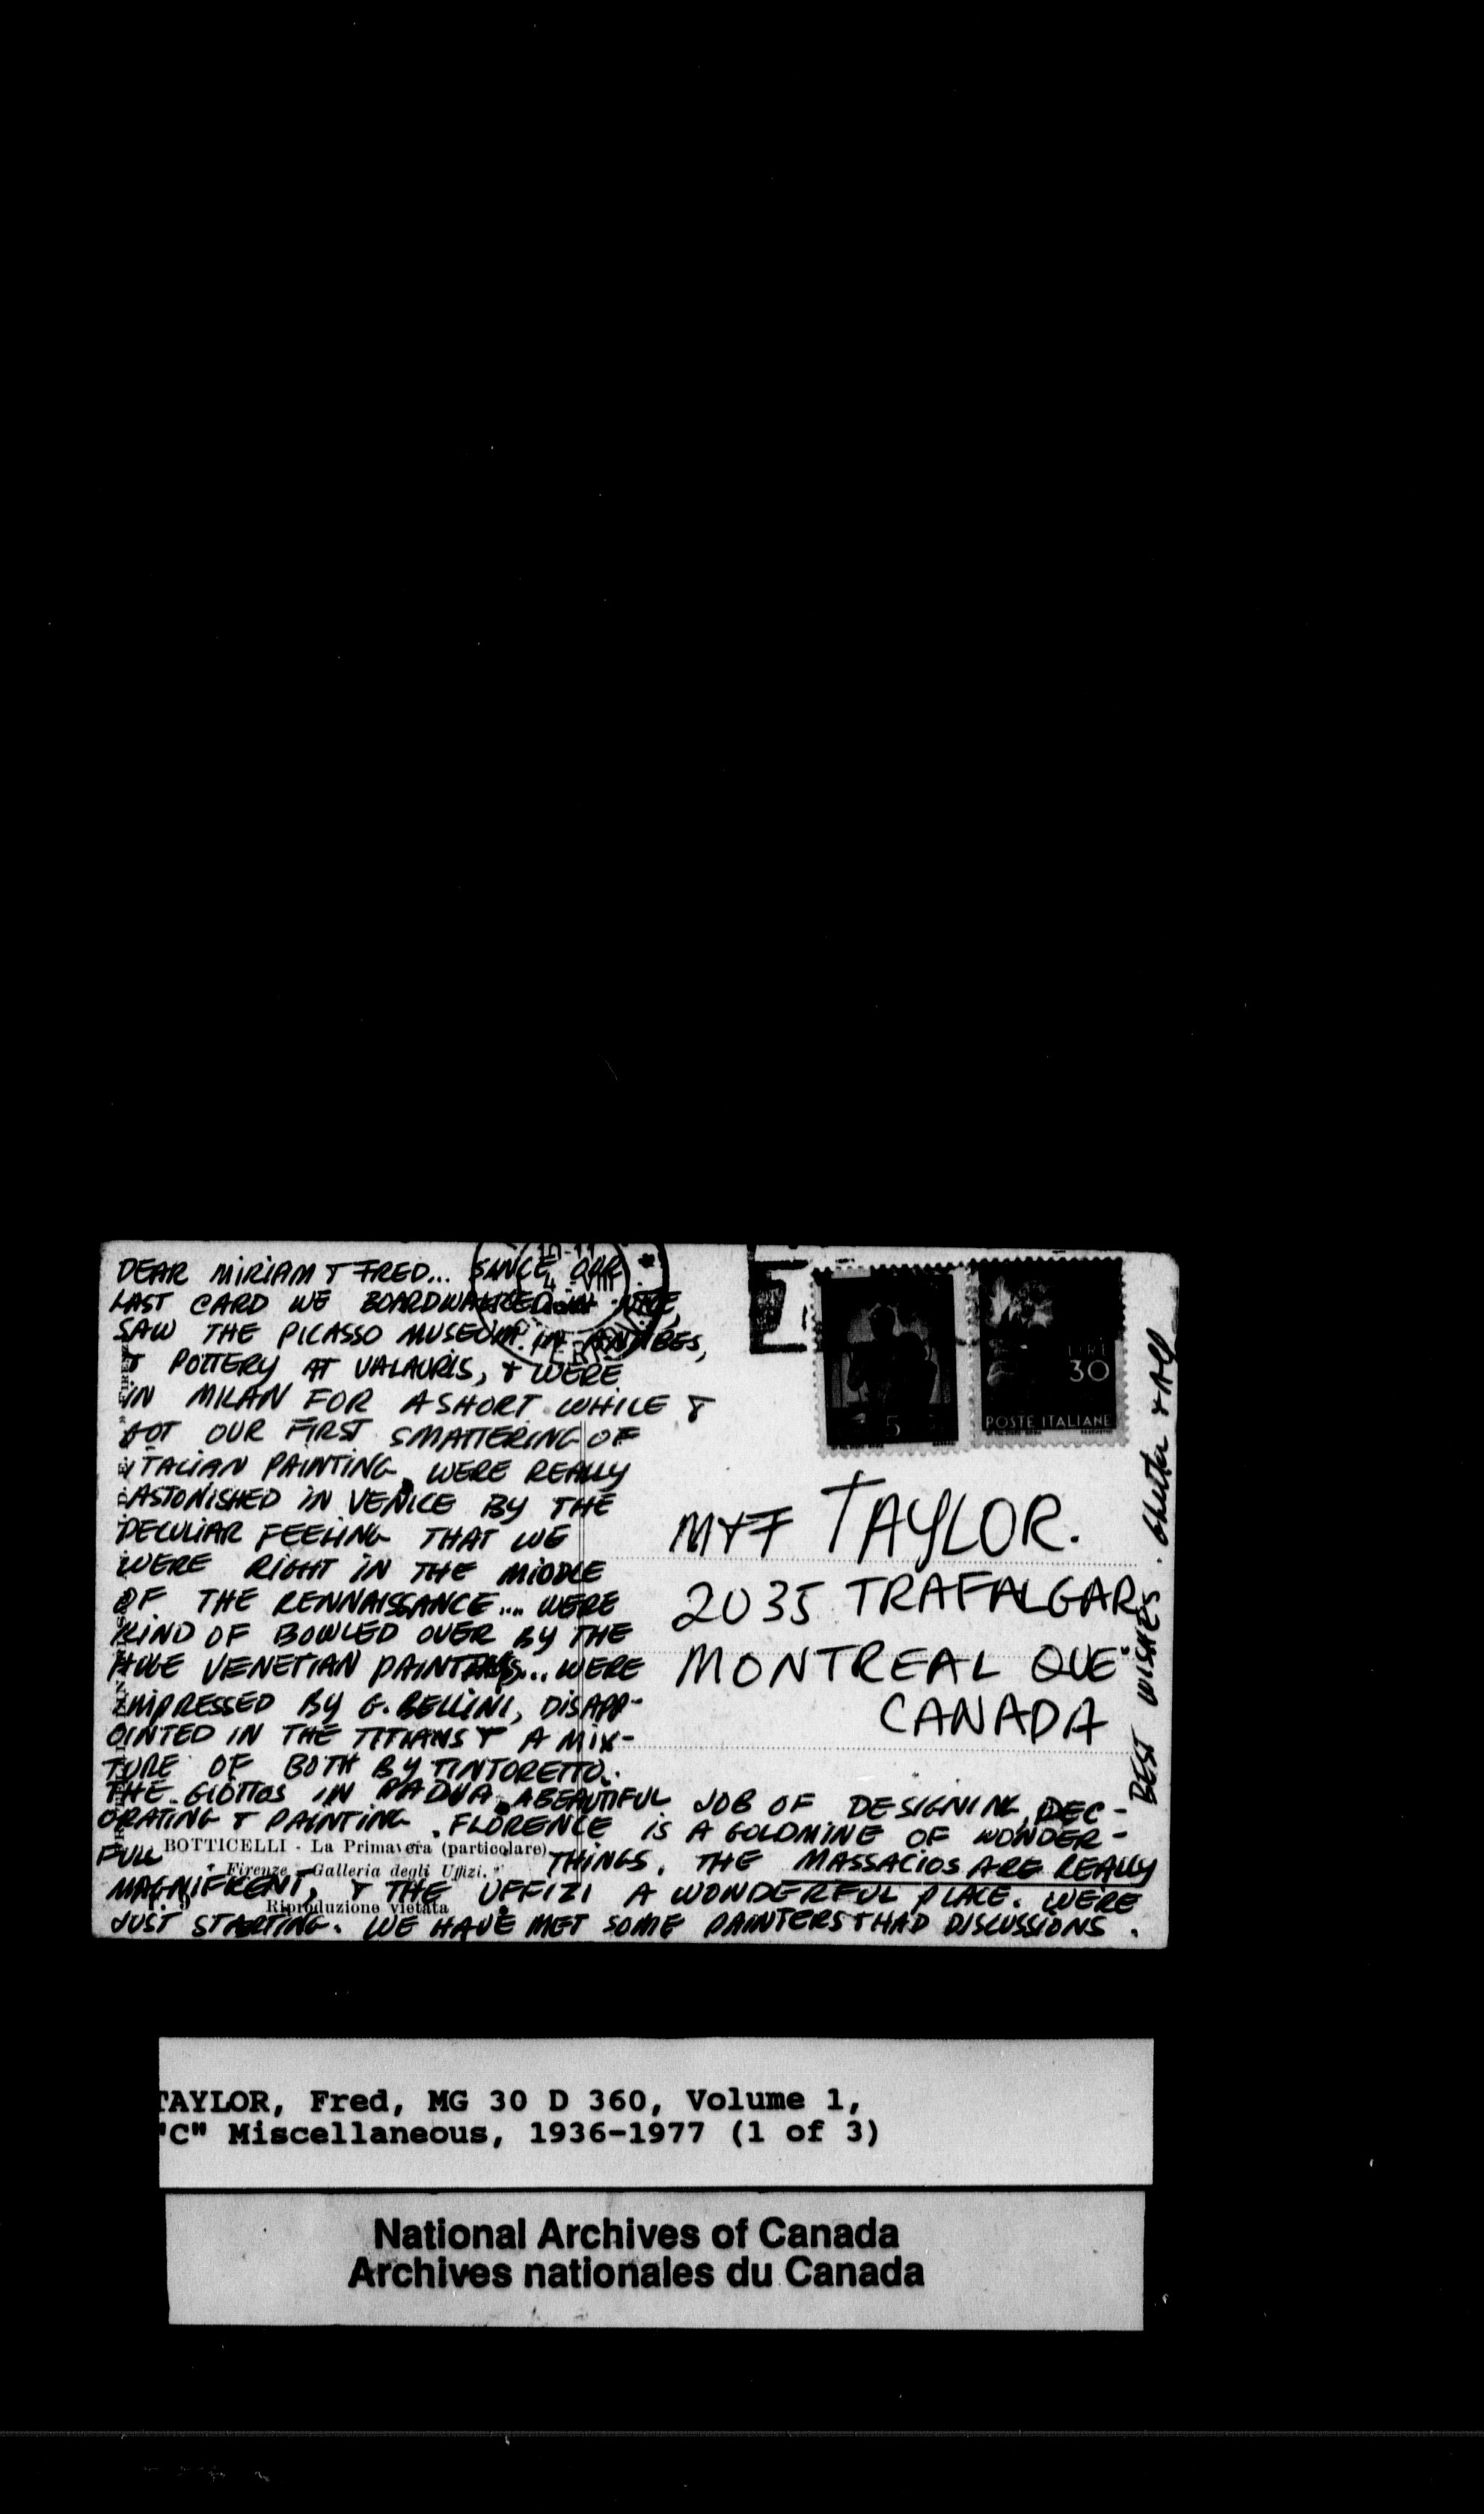 DEAR MIRIAM & FRED... SINCE OUR
LAST CARD WE BOARDWALKED IN NICE,
SAW THE PICASSO MUSEUM IN ANTIBES,
& POTTERY AT VALAURIS, & WERE
IN MILAN FOR A SHORT WHILE &
GOT OUR FIRST SMATTERING OF
ITALIAN PAINTING. WERE REALLY
ASTONISHED IN VENICE BY THE
PECULIAR FEELING THAT WE
WERE RIGHT IN THE MIDDLE
OF THE RENNAISSANCE.... WERE
KIND OF BOWLED OVER BY THE
HUGE VENETIAN PAINTINGS... WERE
IMPRESSED BY G. BELLINI, DISAPP-
OINTED IN THE TITIANS & A MIX-
TURE OF BOTH BY TINTORETTO.
THE GIOTTOS IN PADUA, A BEAUTIFUL JOB OF DESIGNING, DEC-
ORATING & PAINTING. FLORENCE IS A GOLDMINE OF WONDER-
FULL THINGS. THE MASSACIOS ARE REALLY
MAGNIFICENT, & THE UFFIZI A WONDERFUL PLACE. WERE
JUST STARTING. WE HAVE MET SOME PAINTERS & HAD DISCUSSIONS.
BEST WISHES. Ghitta & Alf
BOTTICELLI - La Primavera (particolare)
Firenze - Galleria degli Uffizi.
Riproduzione vietata
5
LIRE
30
POSTE ITALIANE
M & F TAYLOR.
2035 TRAFALGAR
MONTREAL QUE
CANADA
TAYLOR, Fred, MG 30 D 360, Volume 1,
"C" Miscellaneous, 1936-1977 (1 of 3)
National Archives of Canada
Archives nationales du Canada